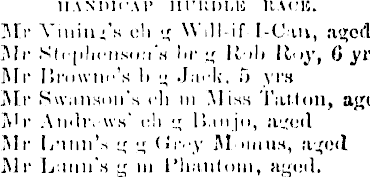 HANDICAP HURDLE RACE.
Mr Vining's ch g Will-if-I-Can, aged
Mr Stephenson's br g Rob Roy, 6 yr
Mr Browne's b g Jack, 5 yrs
Mr Swanson's ch m Miss Tatton, age
Mr Andrews' ch g Banjo, aged
Mr Lunn's g g Grey Momus, aged
Mr Lunn's g m Phantom, aged.